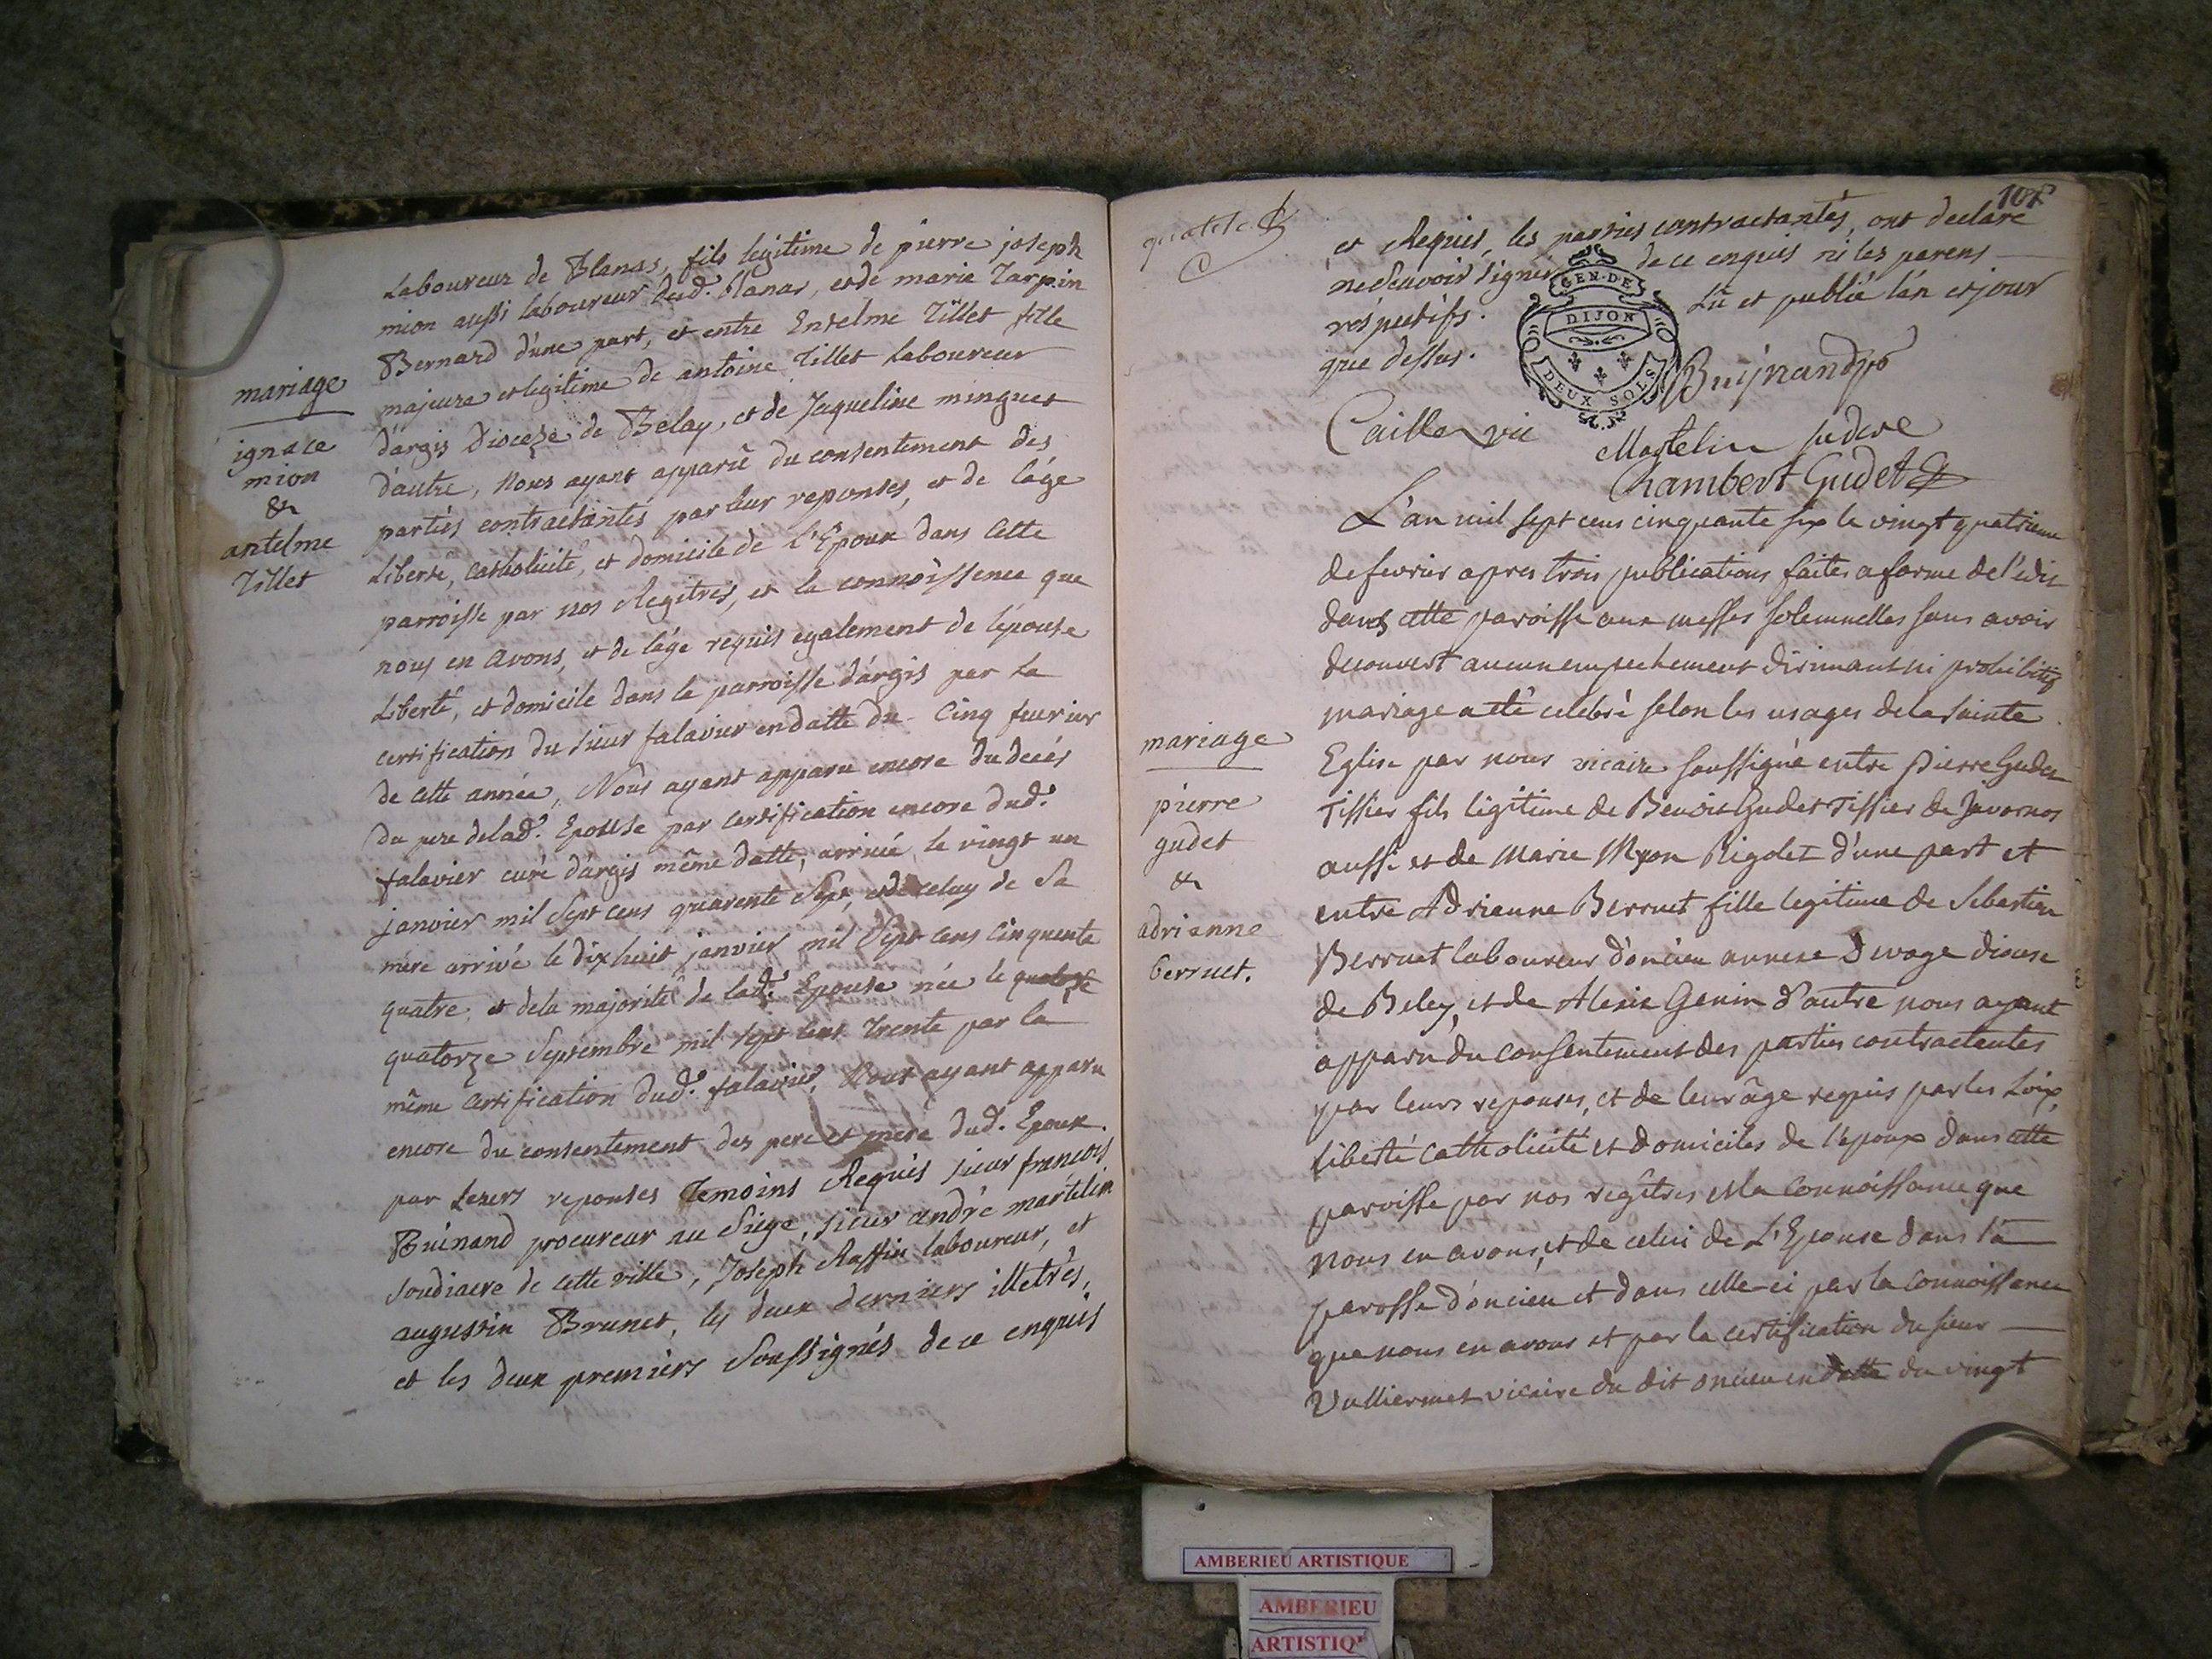 Laboureur de Blanas, fils legitime de pierre joseph
mion aussi laboureur dud. blanas, et de marie Tarpin
Bernard d'une part, et entre Entelme Tillet fille
majeure et legitime de antoine Tillet Laboureur
d'argis Dioceze de Belay, et de Jaqueline minguet
d'autre, Nous ayant apparu du consentement des
parties contractantes par leur reponses, et de l'age
Liberté, catholicité, et domicile de L'Epoux dans Cette
parroisse par nos Regitres, et la connoissence que
nous en avons, et de l'age requis egalement de l'epouse
Liberté, et domicile dans la parroisse d'argis par la
certification du sieur falavier en datte du Cinq fevrier
de cette année, Nous ayant apparu encore du decés
du pere de lad. Epouse par certification encore dud.
falavier curé d'argis même datte, arrivée le vingt un
janvier mil Sept cens quarente Sept, et de celuy de Sa
mere arrivé le dixhuit janvier mil Sept cens Cinquente
quatre, et de la majorité de lad. Epouse née le quatorze
quatorze Septembre mil Sept cens Trente par la
même certification dud. falavier, Nous ayant apparu
encore du consentement des pere et mere dud. Epoux
par Leurs reponses Temoins Requis sieur francois
Buinand procureur au Siege, sieur andré martelin
Soudiacre de cette ville, Joseph Raffin laboureur, et
augustin Brunet, les deux derniers illetrés,
et les deux premiers Soussignés de ce enquis
mariage
ignace
mion
&
antelme
Tillet
107
et Requis, les parties contractantes, ont declaré
ne scavoir signer de ce enquis ni les parens
respectifs. Lû et publié l'an et jour
que dessus.
GEN. DE
DIJON
DEUX SOLS
Buynand
Caillon vic
Martelin sudcre
Chambert Gudet
L'an mil sept cens cinquante six le vingt quatrieme
de fevrier apres trois publications faites a forme de l'edit
dans cette paroisse aux messes solemnelles sans avoir
decouvert aucun empechement dirimant ni prohibitif
mariage a eté celebré selon les usages de la Sainte
Eglise par nous vicaire soussigné entre pierre Gudet
Tissier fils legitime de Benoit Gudet Tissier de Javornos
aussi et de Marie Myon Rigolet d'une part et
entre Adrienne Berruet fille legitime de Sebastien
Berruet laboureur d'oncieu annexe d'evoge diocese
de Beley, et de Alexis Genin d'autre nous ayant
apparu du consentement des parties contractantes
par leurs reponses, et de leur âge requis par les Loix,
liberté catholicité et domiciles de l'epoux dans cette
paroisse par nos regîtres et la connoissance que
nous en avons, et de celui de L'Epouse dans la
parosse d'oncieu et dans celle-ci par la connoissance
que nous en avons et par la certification du sieur
Vulliermet vicaire du dit oncieu en datte du vingt
mariage
pierre
gudet
&
adrienne
berruet.
AMBERIEU ARTISTIQUE
AMBERIEU
ARTISTIQ